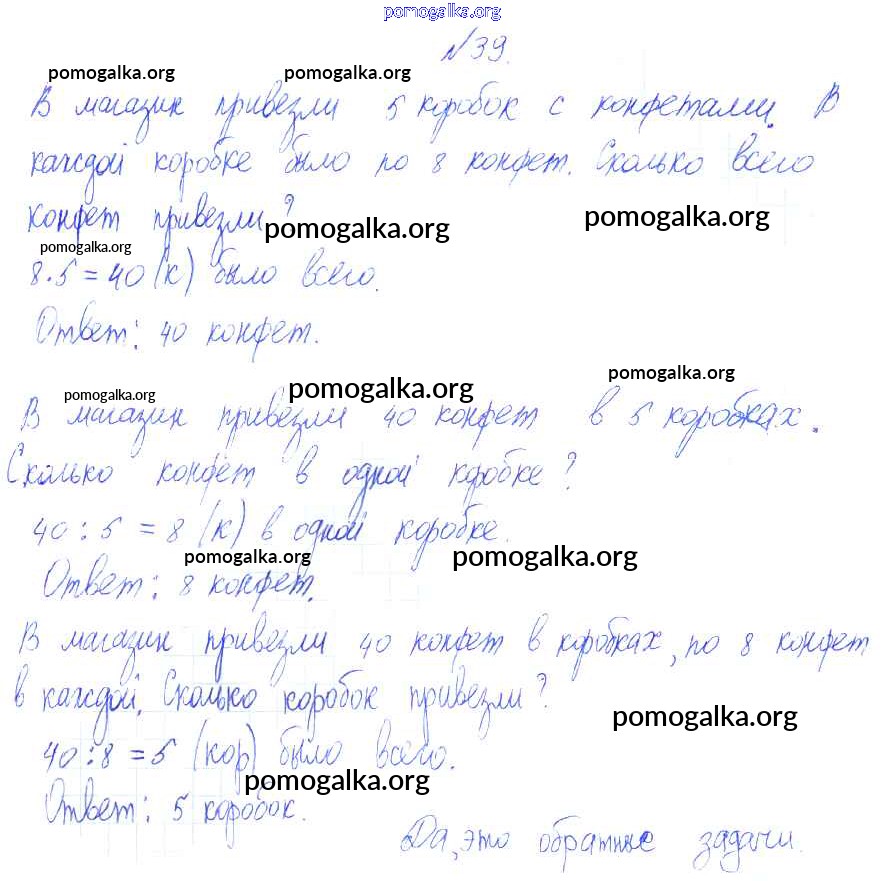 pomogalka.org
№39.
pomogalka.org pomogalka.org
В магазин привезли 5 коробок с конфетами. В
каждой коробке было по 8 конфет. Сколько всего
конфет привезли?
pomogalka.org pomogalka.org
pomogalka.org
8·5=40 (к) было всего.
Ответ: 40 конфет.
pomogalka.org
pomogalka.org pomogalka.org
В магазин привезли 40 конфет в 5 коробках.
Сколько конфет в одной коробке?
40:5=8 (к) в одной коробке.
pomogalka.org pomogalka.org
Ответ: 8 конфет.
В магазин привезли 40 конфет в коробках, по 8 конфет
в каждой. Сколько коробок привезли?
pomogalka.org
40:8=5 (кор) было всего.
pomogalka.org
Ответ: 5 коробок.
Да, это обратные задачи.